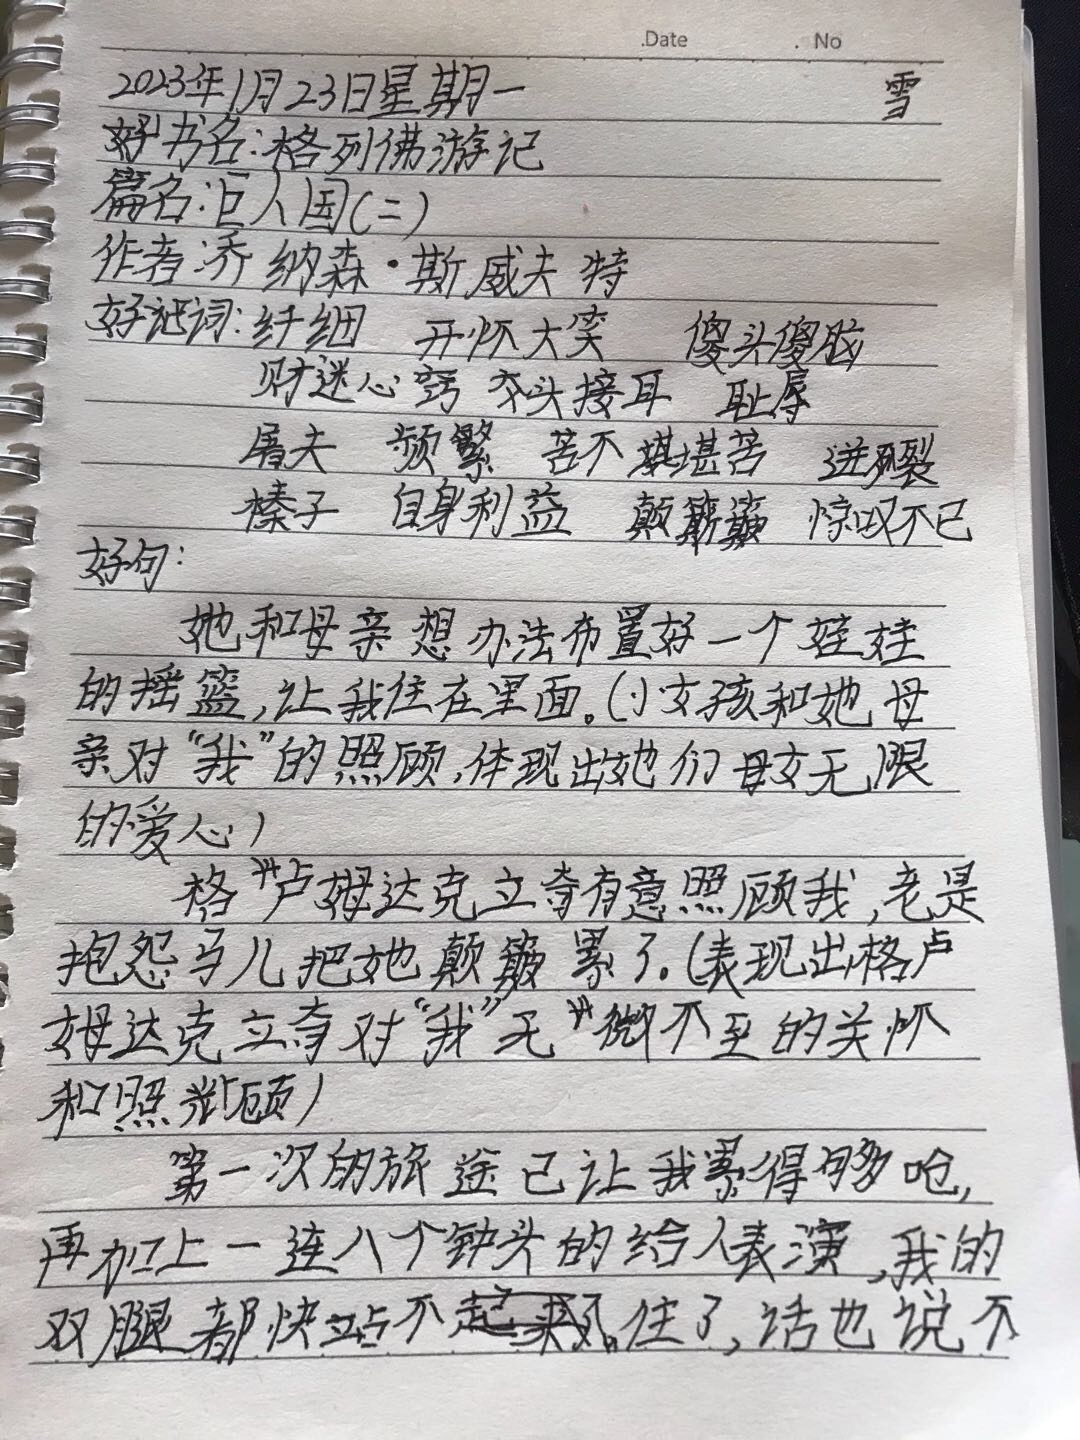 Date No
2023年1月23日星期一 雪
好书名:格列佛游记
篇名:巨人国(二)
作者:乔纳森·斯威夫特
好词:纤细 开怀大笑 傻头傻脑
财迷心窍 交头接耳 耻辱
屠夫 频繁 苦不堪 迸裂
榛子 自身利益 颠簸 惊叹不已
好句:
她和母亲想办法布置好一个娃娃
的摇篮,让我住在里面。(小女孩和她母
亲对“我”的照顾,体现出她们母女无限
的爱心)
格卢姆达克立奇有意照顾我,老是
抱怨马儿把她颠簸累了。(表现出格卢
姆达克立奇对“我”无微不至的关怀
和照顾)
第一次的旅途已让我累得够呛,
再加上一连八个钟头的给人表演,我的
双腿都快站不住了,话也说不